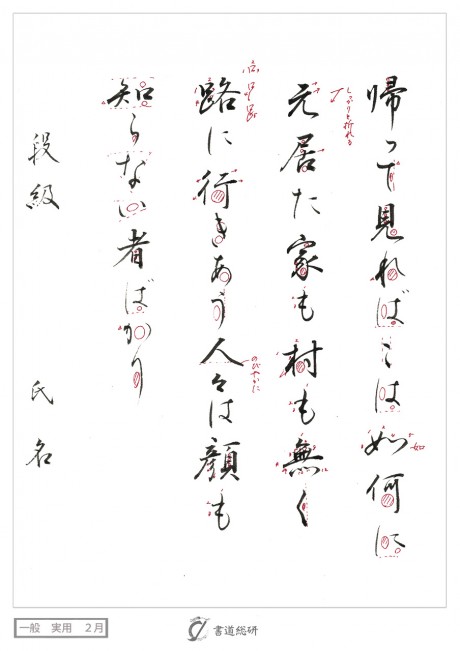 帰って見ればこは如何に
如
元居た家も村も無く
しっかりと折れる
路に行きあう人々は顔も
のびやかに
知らない者ばかり
段級 氏名
一般 実用 2月
書道総研